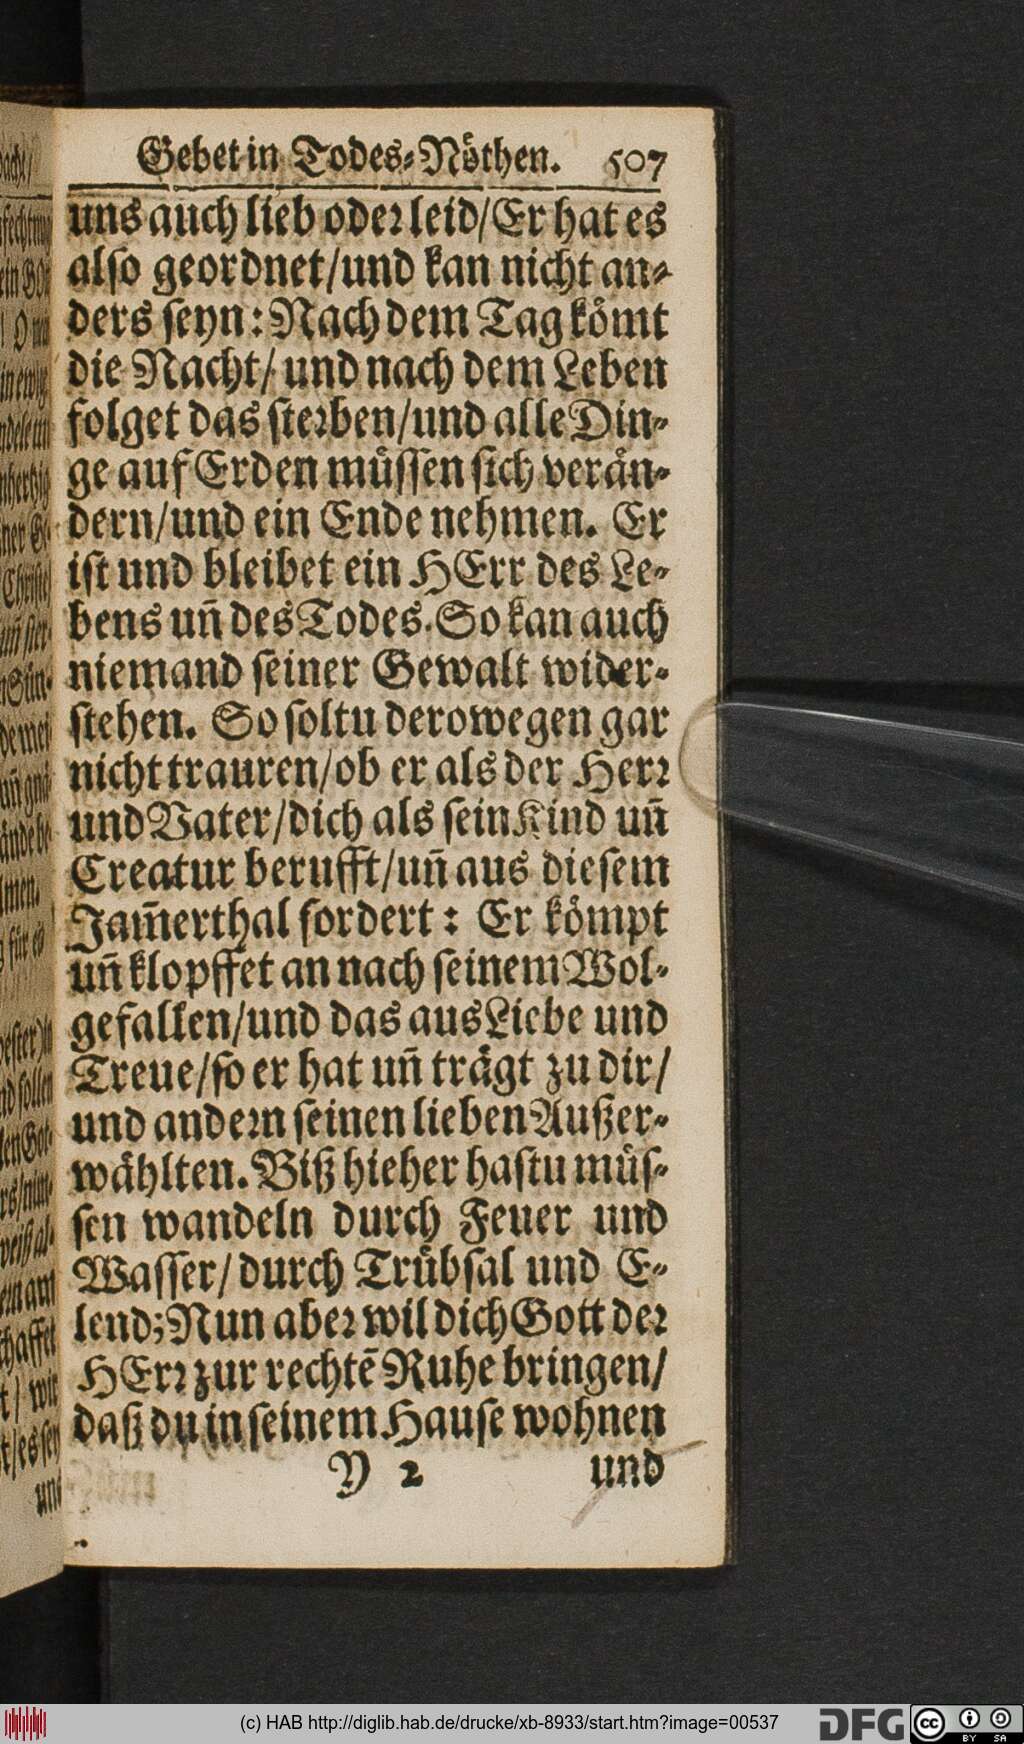 Gebet in Todes-Nöthen. 507
uns auch lieb oder leid/Er hat es
also geordnet/und kan nicht an-
ders seyn: Nach dem Tag kömt
die Nacht/ und nach dem Leben
folget das sterben/und alle Din-
ge auf Erden müssen sich verän-
dern/und ein Ende nehmen. Er
ist und bleibet ein HErr des Le-
bens uñ des Todes. So kan auch
niemand seiner Gewalt wider-
stehen. So soltu derowegen gar
nicht trauren/ob er als der Herr
und Vater/dich als sein Kind uñ
Creatur berufft/uñ aus diesem
Jam̃erthal fordert: Er kömpt
uñ klopffet an nach seinem Wol-
gefallen/und das aus Liebe und
Treue/so er hat uñ trägt zu dir/
und andern seinen lieben Außer-
wählten. Biß hieher hastu müs-
sen wandeln durch Feuer und
Wasser/durch Trübsal und E-
lend; Nun aber wil dich Gott der
HErr zur rechtẽ Ruhe bringen/
daß du in seinem Hause wohnen
Y 2 und
(c) HAB http://diglib.hab.de/drucke/xb-8933/start.htm?image=00537
DFG
cc
BY SA